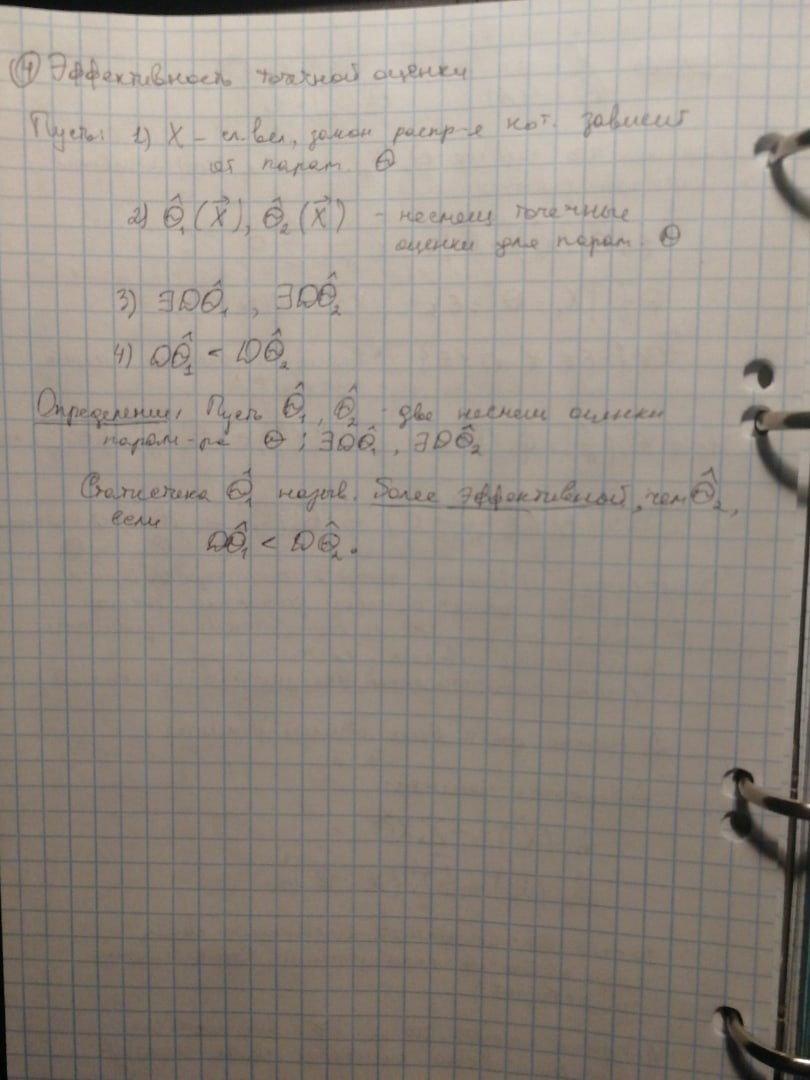 ④ Эффективность точечной оценки
Пусть: 1) X – сл. вел, закон распр-я кот. зависит
от парам. Θ
2) Θ̂₁(X⃗), Θ̂₂(X⃗) - несмещ точечные
оценки для парам. Θ
3) ∃DΘ̂₁ , ∃DΘ̂₂
4) DΘ̂₁ < DΘ̂₂
Определение: Пусть Θ̂₁, Θ̂₂ - две несмещ оценки
парам-ра Θ ; ∃DΘ̂₁ , ∃DΘ̂₂
Статистика Θ̂₁ назыв. более эффективной, чем Θ̂₂,
если
DΘ̂₁ < DΘ̂₂.